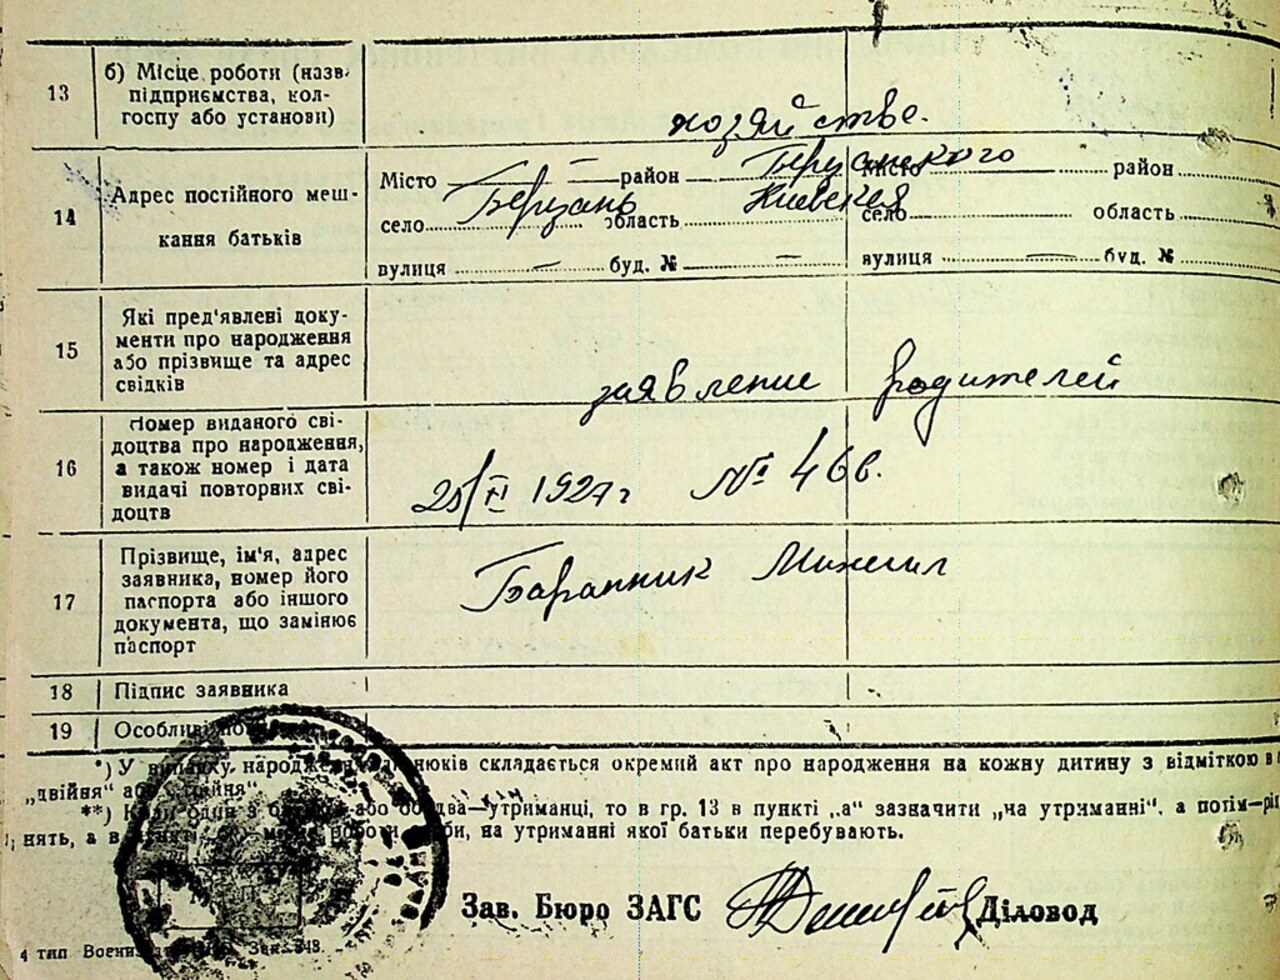 13 б) Місце роботи (назв. підприємства, колгоспу або установи)
хозяйстве.
14 Адрес постійного мешкання батьків
Місто — район Березанского Місто район
село Березань область Киевская село область
вулиця — буд. № — вулиця — буд. №
15 Які пред'явлені документи про народження або прізвище та адрес свідків
заявление родителей
16 Номер виданого свідоцтва про народження, а також номер і дата видачі повторних свідоцтв
25/XI 1927 г № 466.
17 Прізвище, ім'я, адрес заявника, номер його паспорта або іншого документа, що замінює паспорт
Баранник Михаил
18 Підпис заявника
19 Особливі
*) У випадку народження складається окремий акт про народження на кожну дитину з відміткою
„двійня" або
**) Коли один з або обидва—утриманці, то в гр. 13 в пункті „а" зазначити „на утриманні", а потім
нять, а в роботи на утриманні якої батьки перебувають.
Зав. Бюро ЗАГС Діловод
4 тип Зак. 348.